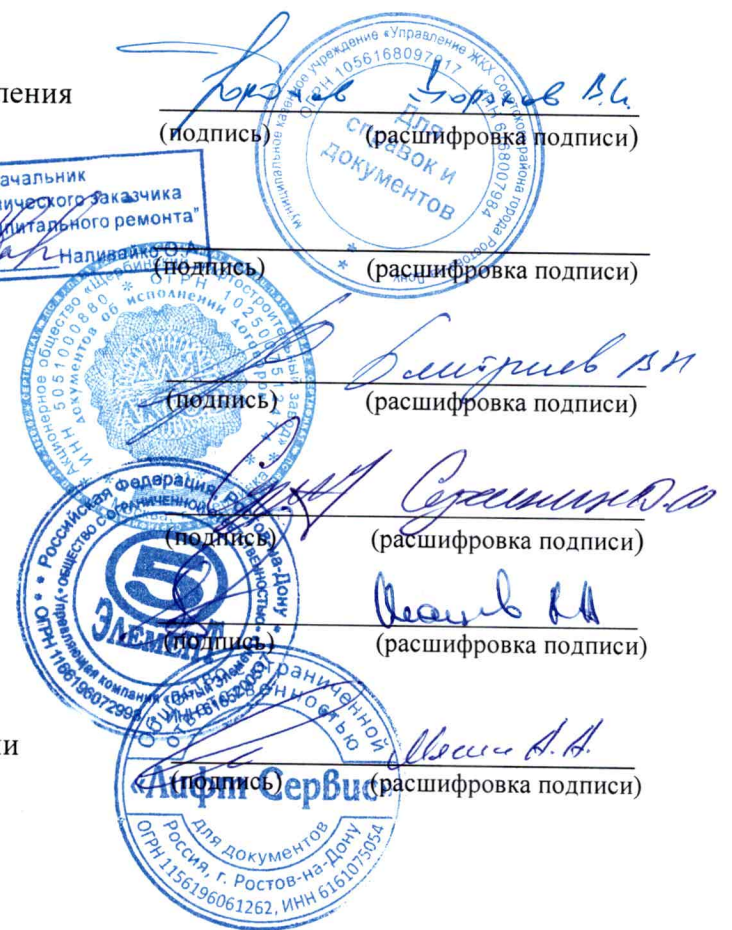 ления
(подпись) (расшифровка подписи)
муниципальное казенное учреждение «Управление ЖКХ Советского района города Ростова-на-Дону»
ОГРН 1056168097017 ИНН 6168007984
Для
справок и
документов
ачальник
ического заказчика
питального ремонта"
Наливайко О.А.
(подпись) (расшифровка подписи)
Акционерное общество «Щербинский лифтостроительный завод»
ИНН 5051000880 * ОГРН 1025007512474
документов об исполнении договоров
Дмитриев В Н
(подпись) (расшифровка подписи)
(подпись) (расшифровка подписи)
Российская Федерация, г. Ростов-на-Дону
ОБЩЕСТВО С ОГРАНИЧЕННОЙ ОТВЕТСТВЕННОСТЬЮ
Управляющая компания «Пятый Элемент»
ОГРН 1166196072998
5
ЭЛЕМЕНТ
(подпись) (расшифровка подписи)
и
Общество с ограниченной
ответственностью
(подпись) (расшифровка подписи)
«Лифт Сервис»
для документов
Россия, г. Ростов-на-Дону
ОГРН 1156196061262, ИНН 6161075054